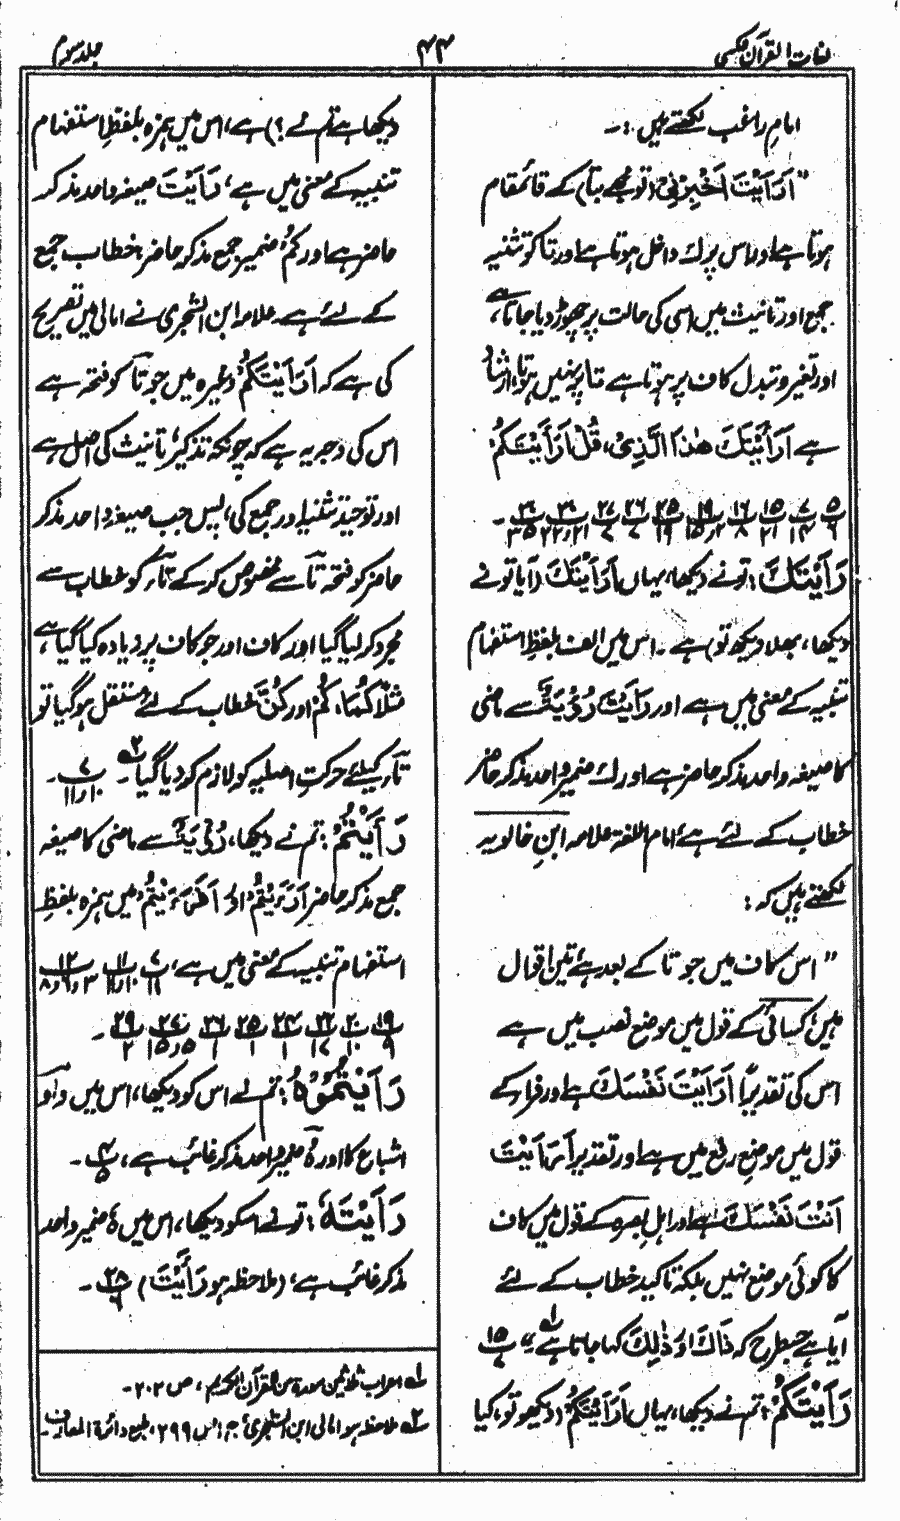 لغات القرآن مکسی
۴۴
جلد سوم
امام راغب لکھتے ہیں :۔
”اَرَاَیْتَ اَخْبِرْنِیْ (تو مجھے بتا) کے قائمقام
ہوتا ہے اور اس پر ك داخل ہوتا ہے اور تا کو تثنیہ
جمع اور تانیث میں اسی کی حالت پر چھوڑ دیا جاتا ہے،
اور تغیر و تبدل کاف پر ہوتا ہے تا پر نہیں ہوتا، ارشاد
ہے اَرَأَیْتَكَ هٰذَا الَّذِیْ، قُلْ اَرَأَیْتَكُمْ،
رَاَیْتَكَ : تو نے دیکھا، یہاں اَرَاَیْتَكَ (آیا تو نے
دیکھا، بھلا دیکھ تو) ہے۔ اس میں الف بلفظِ استفہام
تنبیہ کے معنی میں ہے اور رَاَیْتَ رُؤْیَۃٌ سے ماضی
کا صیغہ واحد مذکر حاضر ہے اور ك ضمیر واحد مذکر حاضر
خطاب کے لئے ہے، امام اللغۃ علامہ ابنِ خالویہ
لکھتے ہیں کہ :
”اس کاف میں جو تا کے بعد ہے تین اقوال
ہیں، کسائی کے قول میں موضعِ نصب میں ہے
اس کی تقدیر اَرَاَیْتَ نَفْسَكَ ہے اور فراء کے
قول میں موضعِ رفع میں ہے اور تقدیر اَرَاَیْتَ
اَنْتَ نَفْسَكَ ہے اور اہلِ بصرہ کے قول میں کاف
کا کوئی موضع نہیں بلکہ تاکید خطاب کے لئے
آیا ہے جسطرح کہ ذَاكَ اور ذٰلِكَ کہا جاتا ہے۔ ۱؎
رَاَیْتَكُمْ : تم نے دیکھا، یہاں اَرَاَیْتَكُمْ (دیکھو تو، کیا
دیکھا ہے تم نے ؟) ہے، اس میں ہمزہ بلفظِ استفہام
تنبیہ کے معنی میں ہے، رَاَیْتَ صیغہ واحد مذکر
حاضر ہے اور كُمْ ضمیر جمع مذکر حاضر، خطاب جمع
کے لئے ہے۔ علامہ ابن الشجری نے امالی میں تصریح
کی ہے کہ اَرَاَیْتَكُمْ وغیرہ میں جو تَا کو فتحہ ہے
اس کی وجہ یہ ہے کہ چونکہ تذکیر، تانیث کی اصل ہے
اور توحید تثنیہ اور جمع کی، پس جب صیغہ واحد مذکر
حاضر کو فتحہ تَا سے مخصوص کر کے تاء کو خطاب سے
مجرد کر لیا گیا اور کاف اور جو کاف پر زیادہ کیا گیا ہے،
مثلاً كُمَا، كُمْ اور كُنَّ خطاب کے لئے مستقل ہو گیا تو
تاء کیلئے حرکتِ اصلیہ کو لازم کر دیا گیا۔ ۲؎
رَأَیْتُمْ : تم نے دیکھا، رُؤْیَۃٌ سے ماضی کا صیغہ
جمع مذکر حاضر اَرَءَیْتُمْ اور اَفَرَءَیْتُمْ میں ہمزہ بلفظِ
استفہام تنبیہ کے معنی میں ہے،
رَاَیْتُمُوْهُ : تم نے اس کو دیکھا، اس میں واو
اشباع کا اور هُ ضمیر واحد مذکر غائب ہے،
رَاَیْتَهٗ : تو نے اسکو دیکھا، اس میں هٗ ضمیر واحد
مذکر غائب ہے، (ملاحظہ ہو رَاَیْتَ)
۱؎ اعراب ثلاثین سورۃ من القرآن الکریم، ص ۲۰۲۔
۲؎ ملاحظہ ہو امالی ابن الشجری ج ۱ ص ۲۹۹، طبع دائرۃ المعارف۔